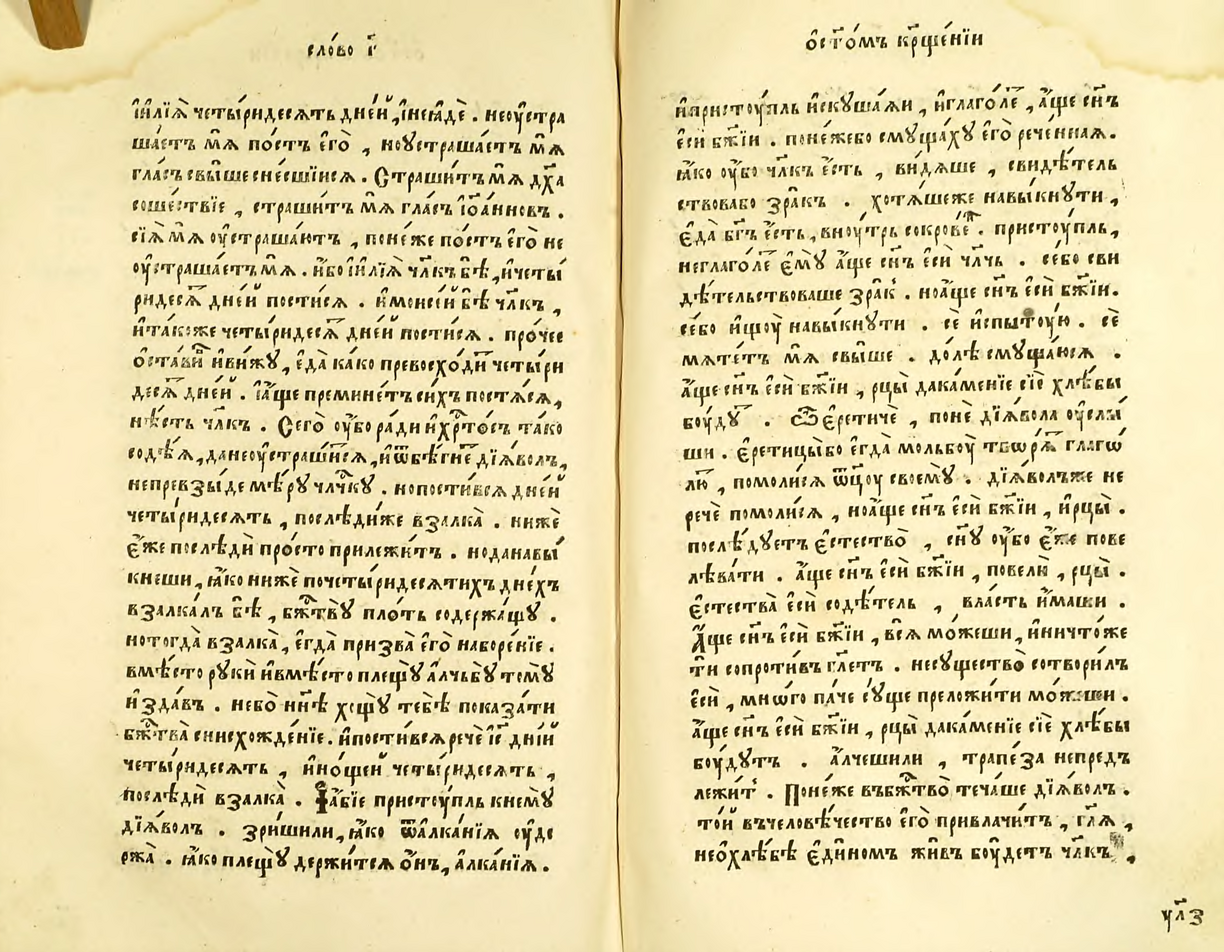 сло́во г҃і
и҆илїѧ̀ четы́ридесѧть дне́й , и҆неꙗ҆дѐ . неоу҆стра
ша́етъ мѧ̀ по́стъ е҆го̀ , ноу҆страша́етъ мѧ̀
гла́съ свы́ше сне́сшїисѧ . Страши́тъ мѧ̀ дх҃а
соше́ствїе , страши́тъ мѧ̀ гла́съ і҆оа́нновъ .
сїѧ̀ мѧ̀ оу҆страша́ютъ , поне́же по́стъ е҆го̀ не
оу҆страша́етъ мѧ̀ . и҆́бо и҆илїѧ̀ чл҃къ бѣ̀ , и҆четы́
ридесѧ̀т дне́й пости́сѧ . и҆моисе́й бѣ̀ чл҃къ ,
и҆та́коже четы́ридесѧт дне́й пости́сѧ . про́чее
о҆ста́ви и҆ви́жꙋ , е҆да̀ ка́ко превосхо́ди четы́ри
десѧт дне́й . і҆а҆́ще премине́тъ си́хъ постѧ́сѧ ,
нѣ́сть чл҃къ . Сего̀ оу҆́бо ра́ди и҆хрⷭ҇то́съ та́ко
содѣ́ѧ , данеоу҆страши́сѧ , и҆ѿбѣ́гне дїѧ́волъ ,
непревзы́де мѣ́рꙋ чл҃чкꙋ . нопости́всѧ дне́й
четы́ридесѧть , послѣди́же взалка̀ . нижѐ
є҆́же послѣдѝ про́сто прилежи́тъ . ноданавы́
кнеши , ꙗ҆́ко нижѐ почеты́ридесѧтихъ дне́хъ
взалка́лъ бѣ̀ , бж҃твꙋ̀ пло́ть содержа́щꙋ .
нотогда̀ взалка̀ , е҆гда̀ призва̀ е҆го̀ наборе́нїе .
вмѣ́сто рꙋкѝ и҆вмѣ́сто плещꙋ̀ а҆лчьбꙋ̀ томꙋ̀
и҆зда́въ . небо̀ нн҃ѣ хощꙋ̀ тебѣ̀ показа́ти
бж҃тва̀ снисхожде́нїе . и҆пости́всѧ речѐ і҆с҃ дні́й
четы́ридесѧть , и҆ноще́й четы́ридесѧть ,
послѣдѝ взалка̀ . І҆а҆́бїе пристоу́пль кнемꙋ̀
дїѧ́волъ . зри́шили , ꙗ҆́ко ѿалка́нїѧ оу҆де
ржа̀ . ꙗ҆́ко плещꙋ̀ держи́тсѧ ѻ҆́нъ , а҆лка́нїѧ .
ѻ҆ст҃о́мъ крⷳ҇щє́нїи
и҆пристоу́пль и҆скꙋша́ѧи , и҆глаго́ле , а҆́ще сн҃ъ
е҆сѝ бж҃їи . поне́жебо смꙋща́хꙋ е҆го̀ рече́ннаѧ .
ꙗ҆́ко оу҆́бо чл҃къ є҆́сть , ви́дѧше , свидѣ́тель
ствовабо зра́къ . хотѧ́шеже навы́кнꙋти ,
є҆да̀ бг҃ъ є҆́сть , вноу́трь сокрове́т . пристоу́пль ,
неглаго́ле є҆мꙋ̀ а҆́ще сн҃ъ е҆сѝ чл҃чь . се́бо сви
дѣ́тельствоваше зра́к . ноа҆́ще сн҃ъ е҆сѝ бж҃їи .
се́бо и҆щоу̀ навы́кнꙋти . сѐ и҆спы́тоую . сѐ
мѧте́тъ мѧ̀ свы́ше . до́лѣ смꙋща́юсѧ .
а҆́ще сн҃ъ е҆сѝ бж҃їи , рцы̀ дака́менїе сїѐ хлѣ́бы
боу́дꙋт . Ѽ є҆ретичѐ , понѐ дїѧ́вола оу҆слы́
ши . є҆ретицы́бо е҆гда̀ мольбоу̀ творѧ́т глаго́
лю , помоли́сѧ ѿц҃оу своемꙋ̀ . дїѧ́волъже не
речѐ помоли́сѧ , ноа҆́ще сн҃ъ е҆сѝ бж҃їи , и҆рцы̀ .
послѣ́дꙋетъ є҆стество̀ , сн҃ꙋ оу҆́бо є҆́же пове
лѣва́ти . а҆́ще сн҃ъ е҆сѝ бж҃їи , повелю̀ , рцы̀ .
є҆стества̀ е҆сѝ содѣ́тель , вла́сть и҆́маши .
А҆́ще сн҃ъ е҆сѝ бж҃їи , всѧ̀ мо́жеши , и҆ничто́же
ти сопроти́въ гл҃етъ . несꙋщество̀ сотвори́лъ
е҆сѝ , мнѡ́го па́че сꙋ́ще преложи́ти мо́жеши .
а҆́ще сн҃ъ е҆сѝ бж҃їи , рцы̀ дака́менїе сїѐ хлѣ́бы
боу́дꙋтъ . а҆́лчешили , трапе́за непредъ
лежи́т . Поне́же въбж҃тво̀ теча́ше дїѧ́волъ .
то́й въчеловѣ́чество е҆го̀ привлачи́тъ , гл҃ѧ ,
неохлѣ́бѣ є҆ди́номъ жи́въ боу́детъ чл҃къ ,
ул҃з